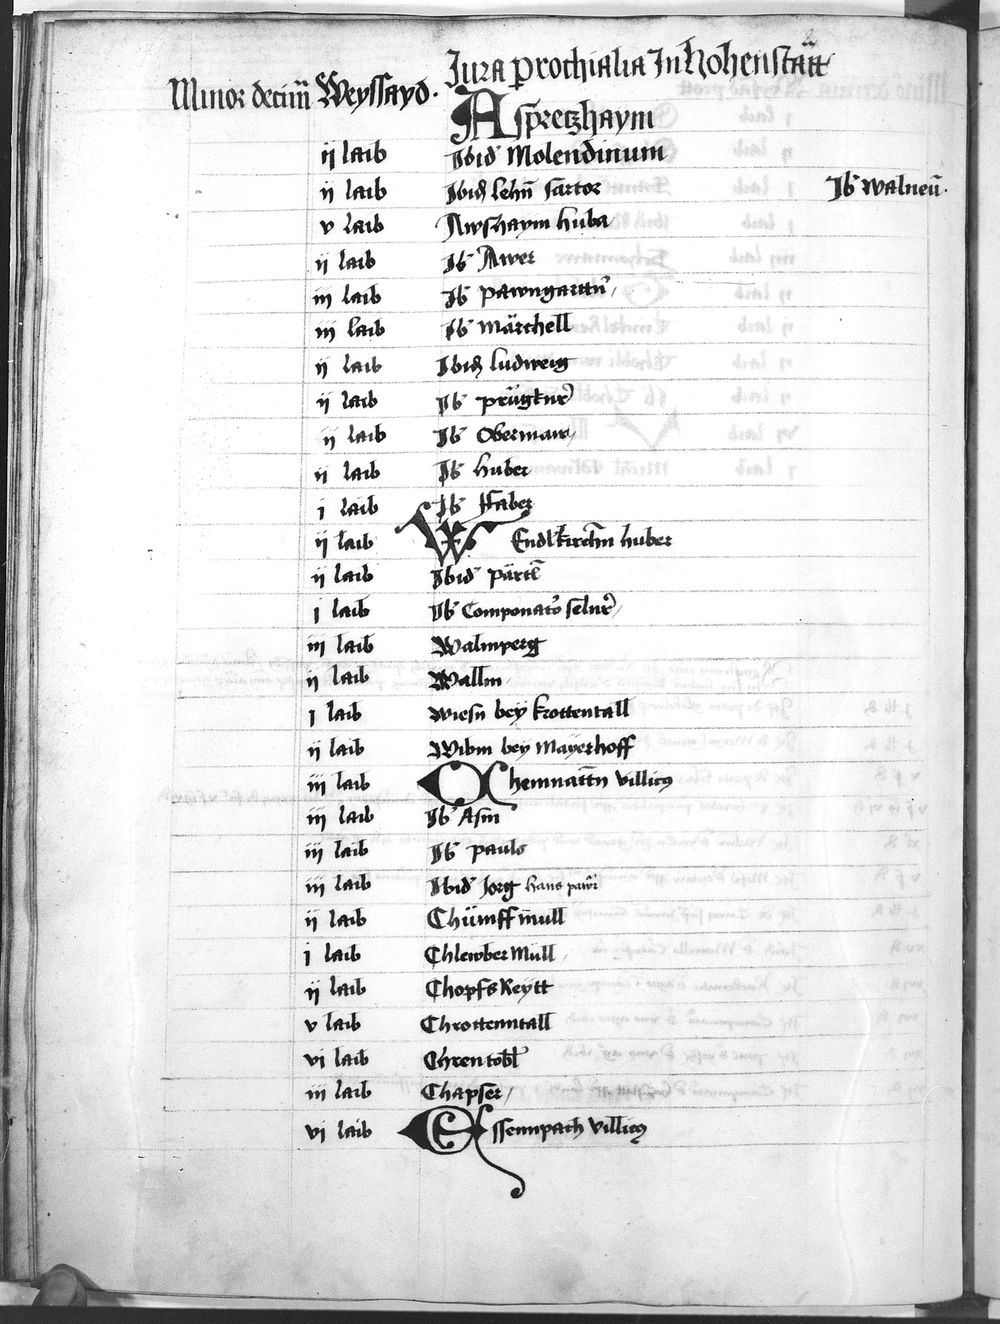 Jura prochialia Jn Hohenstätt
Minor decim̄ Weyssayd.
Aspretzhaym
ij laib Jbid Molendinum
ij laib Jbid lehn̄ sartor Jb walneū.
v laib Awshaym huba
ij laib Jb Awer
iij laib Jb pawngarttn̄
iij laib Jb Märchell
ij laib Jbid ludweig
ij laib Jb
ij laib Jb Obermair
ij laib Jb huber
j laib Jb Ffaber
ij laib WEndlkirchn̄ huber
ij laib Jbid pärtl̄
j laib Jb Componator
iij laib Walmperg
ij laib Wallm
j laib wiesn bey krottentall
ij laib Wibm bey Mayerhoff
iij laib Chemnattn̄ villicus
iij laib Jb Asm
iij laib Jb pauls
iij laib Jbid Jorg hans
ij laib Chümffmüll
j laib Chlewber Müll
ij laib Chopfskeytt
v laib Chrottenntall
vi laib Chrentobl
iij laib Chapfer
vi laib Essenpach villicus